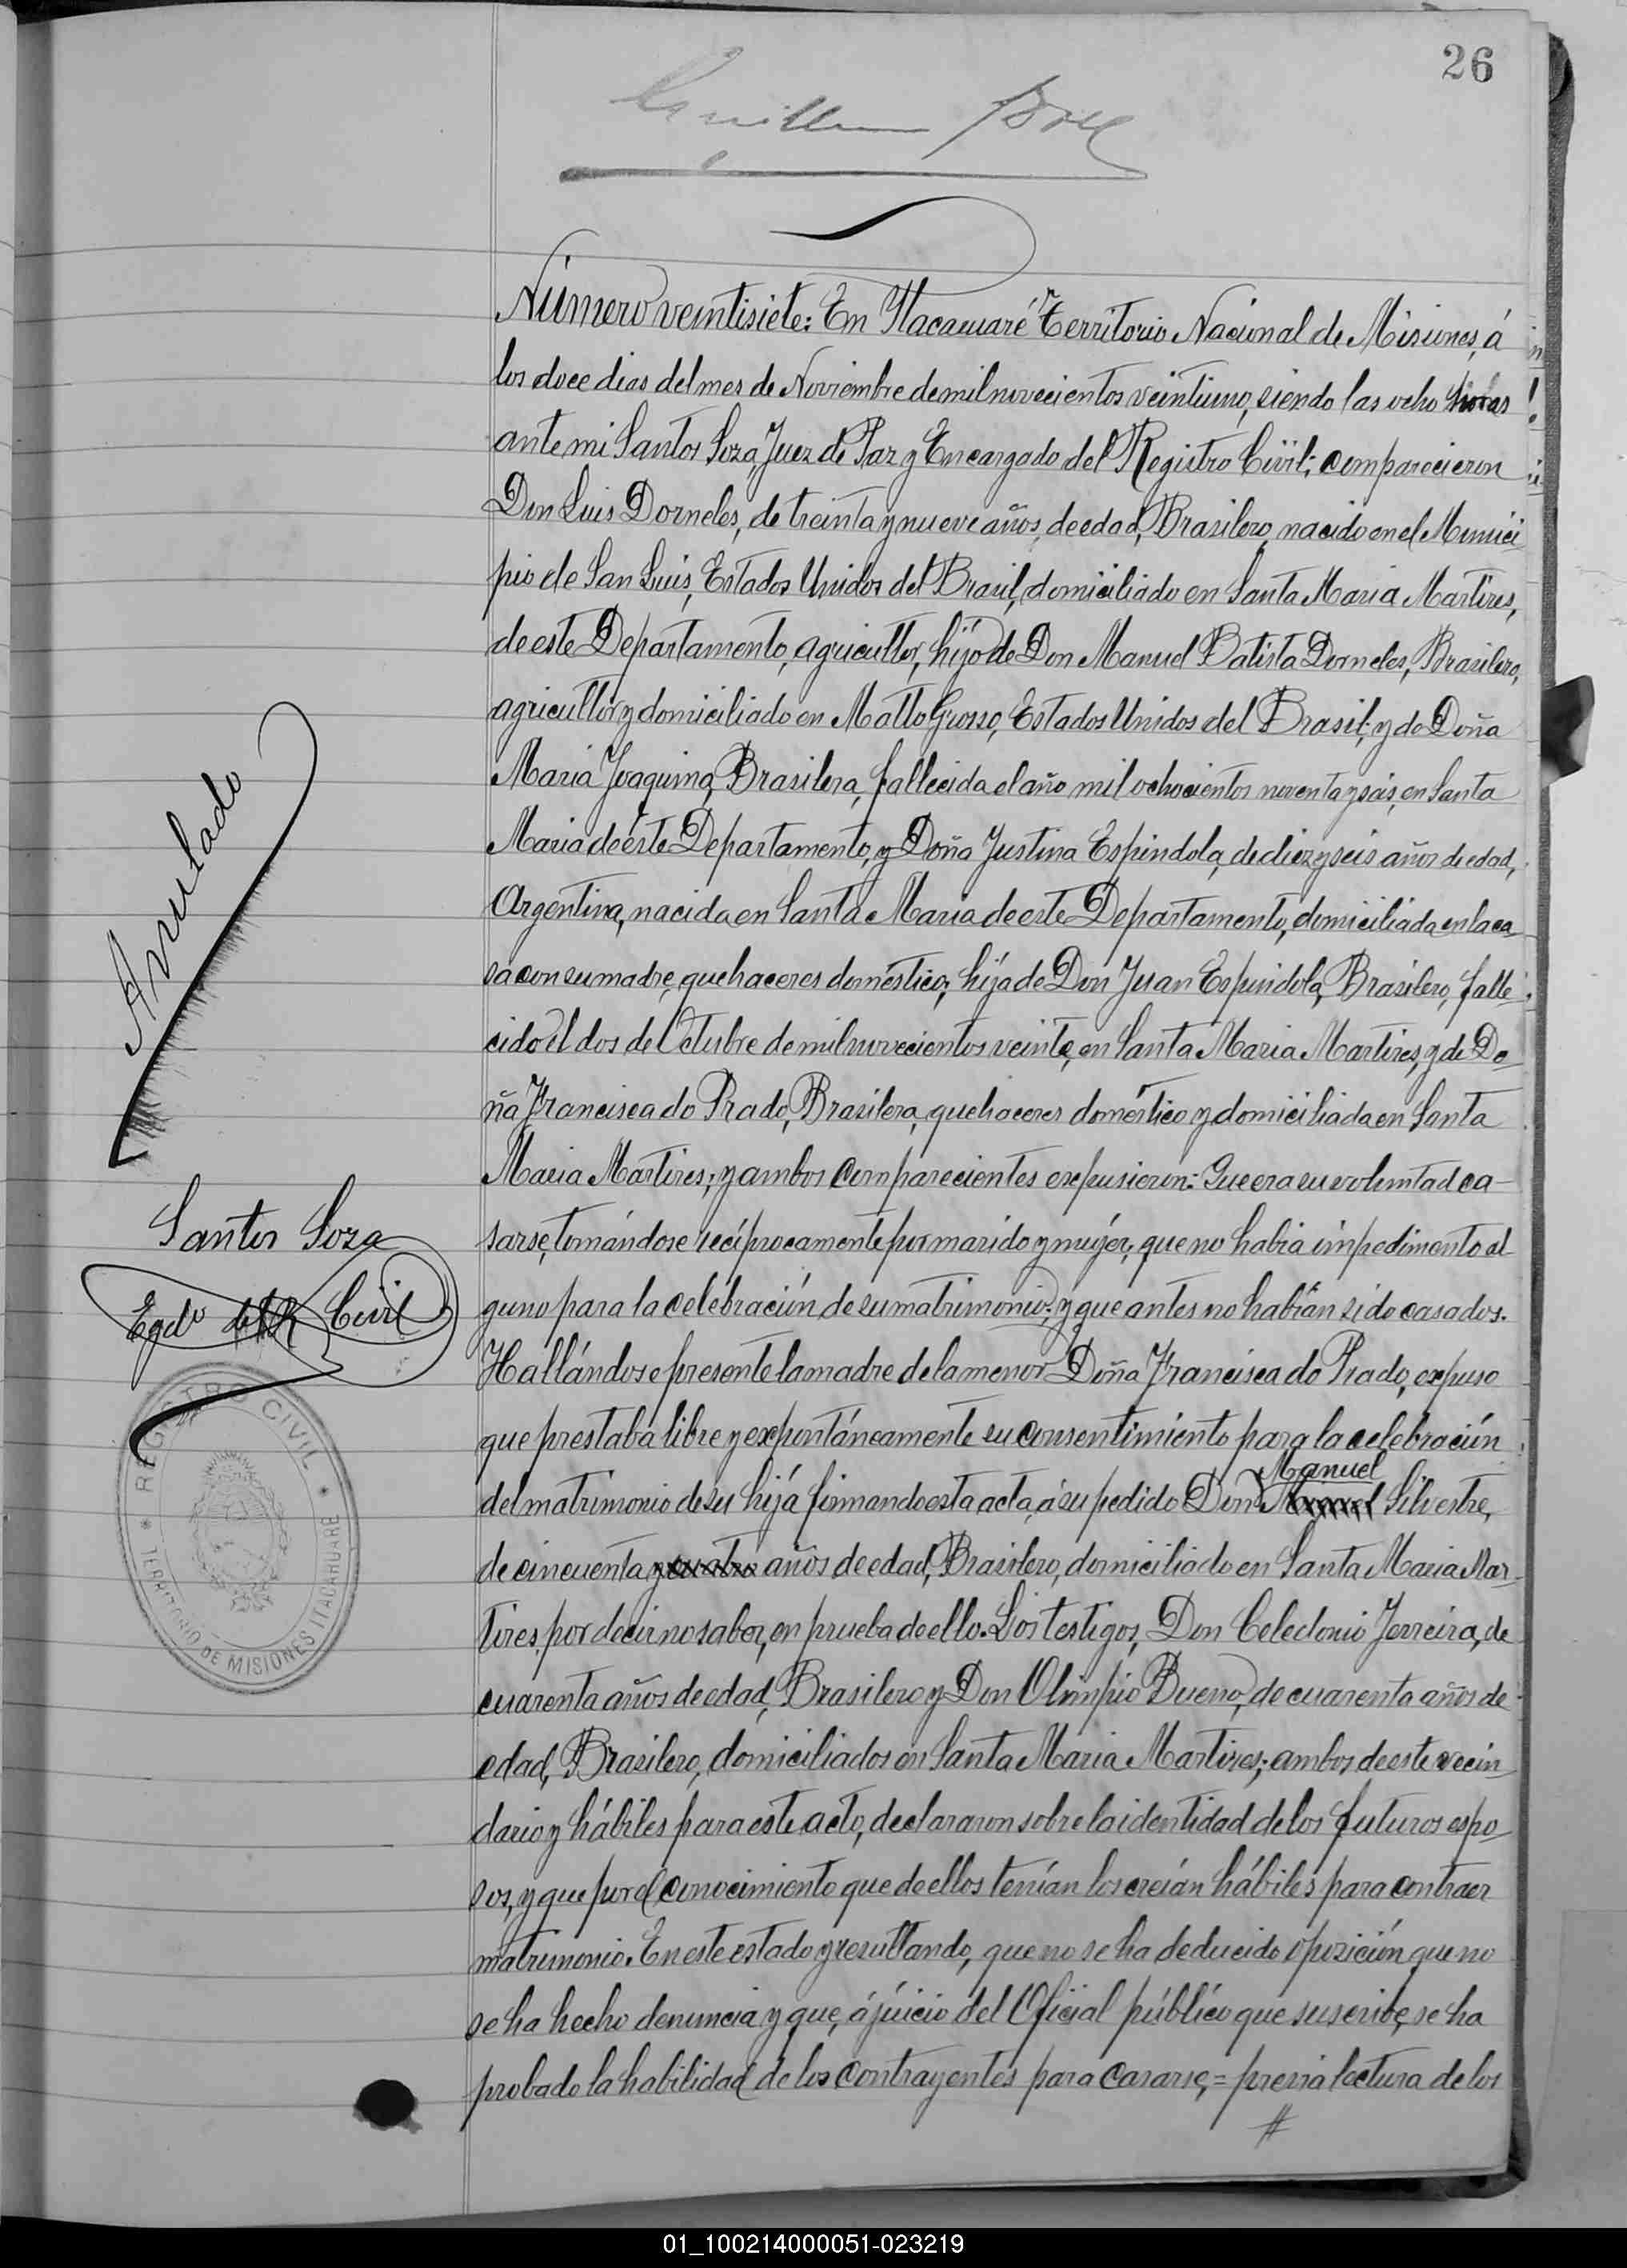 26
Número veintisiete: En Itacaruaré Territorio Nacional de Misiones, á
los doce dias del mes de Noviembre de mil novecientos veintiuno, siendo las ocho horas
ante mi Santos Soza, Juez de Paz y Encargado del Registro Civil; comparecieron
Don Luis Dorneles, de treinta y nueve años, de edad, Brasilero, nacido en el Munici
pio de San Luis, Estados Unidos del Brasil, domiciliado en Santa Maria Martires,
de este Departamento, agricultor, hijo de Don Manuel Batista Dorneles, Brasilero,
agricultor y domiciliado en Matto Grosso, Estados Unidos del Brasil; y de Doña
Maria Joaquina, Brasilera, fallecida el año mil ochocientos noventa y seis, en Santa
Maria de éste Departamento, y Doña Justina Espindola, de diez y seis años de edad,
Argentina, nacida en Santa Maria de este Departamento, domiciliada en la ca
sa con su madre, quehaceres doméstico; hija de Don Juan Espindola, Brasilero, falle
cido el dos de Octubre de mil novecientos veinte, en Santa Maria Martires, y de Do
ña Francisca do Prado, Brasilera, quehaceres doméstico y domiciliada en Santa
Maria Martires; y ambos comparecientes expusieron: Que era su voluntad ca-
sarse, tomándose recíprocamente por marido y mujer; que no habia impedimento al
guno para la celebración de su matrimonio; y que antes no habían sido casados.
Hallándose presente la madre de la menor Doña Francisca do Prado, expuso
que prestaba libre y expontáneamente su consentimiento para la celebración
Manuel
del matrimonio de su hija firmando esta acta, á su pedido Don Silvestre,
de cincuenta y cuatro años de edad, Brasilero, domiciliado en Santa Maria Mar-
tires, por decir no saber, en prueba de ello. Los testigos, Don Celedonio Ferreira, de
cuarenta años de edad, Brasilero y Don Olimpio Bueno, de cuarenta años de
edad, Brasilero, domiciliados en Santa Maria Martires; ambos de este vecin
dario y hábiles para este acto, declararon sobre la identidad de los futuros espo
sos, y que por el conocimiento que de ellos tenían los creían hábiles para contraer
matrimonio. En este estado y resultando, que no se ha deducido oposición que no
se ha hecho denuncia y que, á juicio del Oficial público que suscribe, se ha
probado la habilidad de los contrayentes para casarse, = previa lectura de los
#
Anulado
Santos Soza
Egdo del R Civil
REGISTRO CIVIL
TERRITORIO DE MISIONES ITACARUARE
01_100214000051-023219